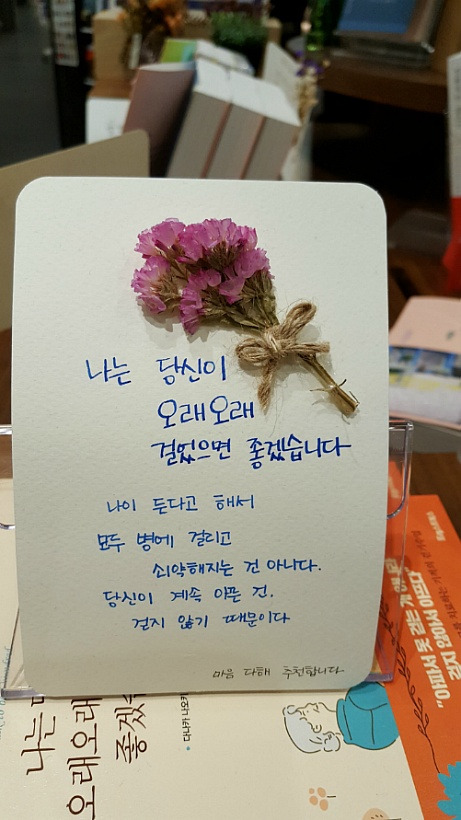 나는 당신이
오래오래
걸었으면 좋겠습니다
나이 든다고 해서
모두 병에 걸리고
쇠약해지는 건 아니다.
당신이 계속 아픈 건.
걷지 않기 때문이다
마음 다해 추천합니다
나는
오래오래
좋겠
다나카 나오키
"아파서 못 걷는 게 아니라
걷지 않아서 아프다"